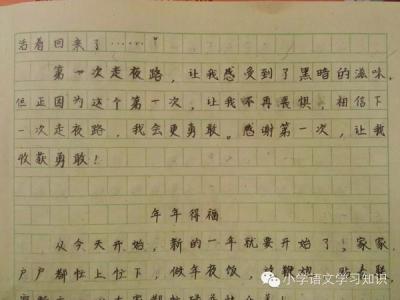 活着回来了……!
第一次走夜路，让我感受到了黑暗的滋味，
但正因为这个第一次，让我不再畏惧，相信下
一次走夜路，我会更勇敢。感谢第一次，让我
收获勇敢！
年年得福
从今天开始，新的一年就要开始了！家家
户户都忙上忙下，做年夜饭，放鞭炮，贴春联
小学语文学习知识